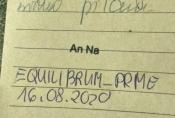 An Na
EQUILIBRUM_PRME
16.08.2020